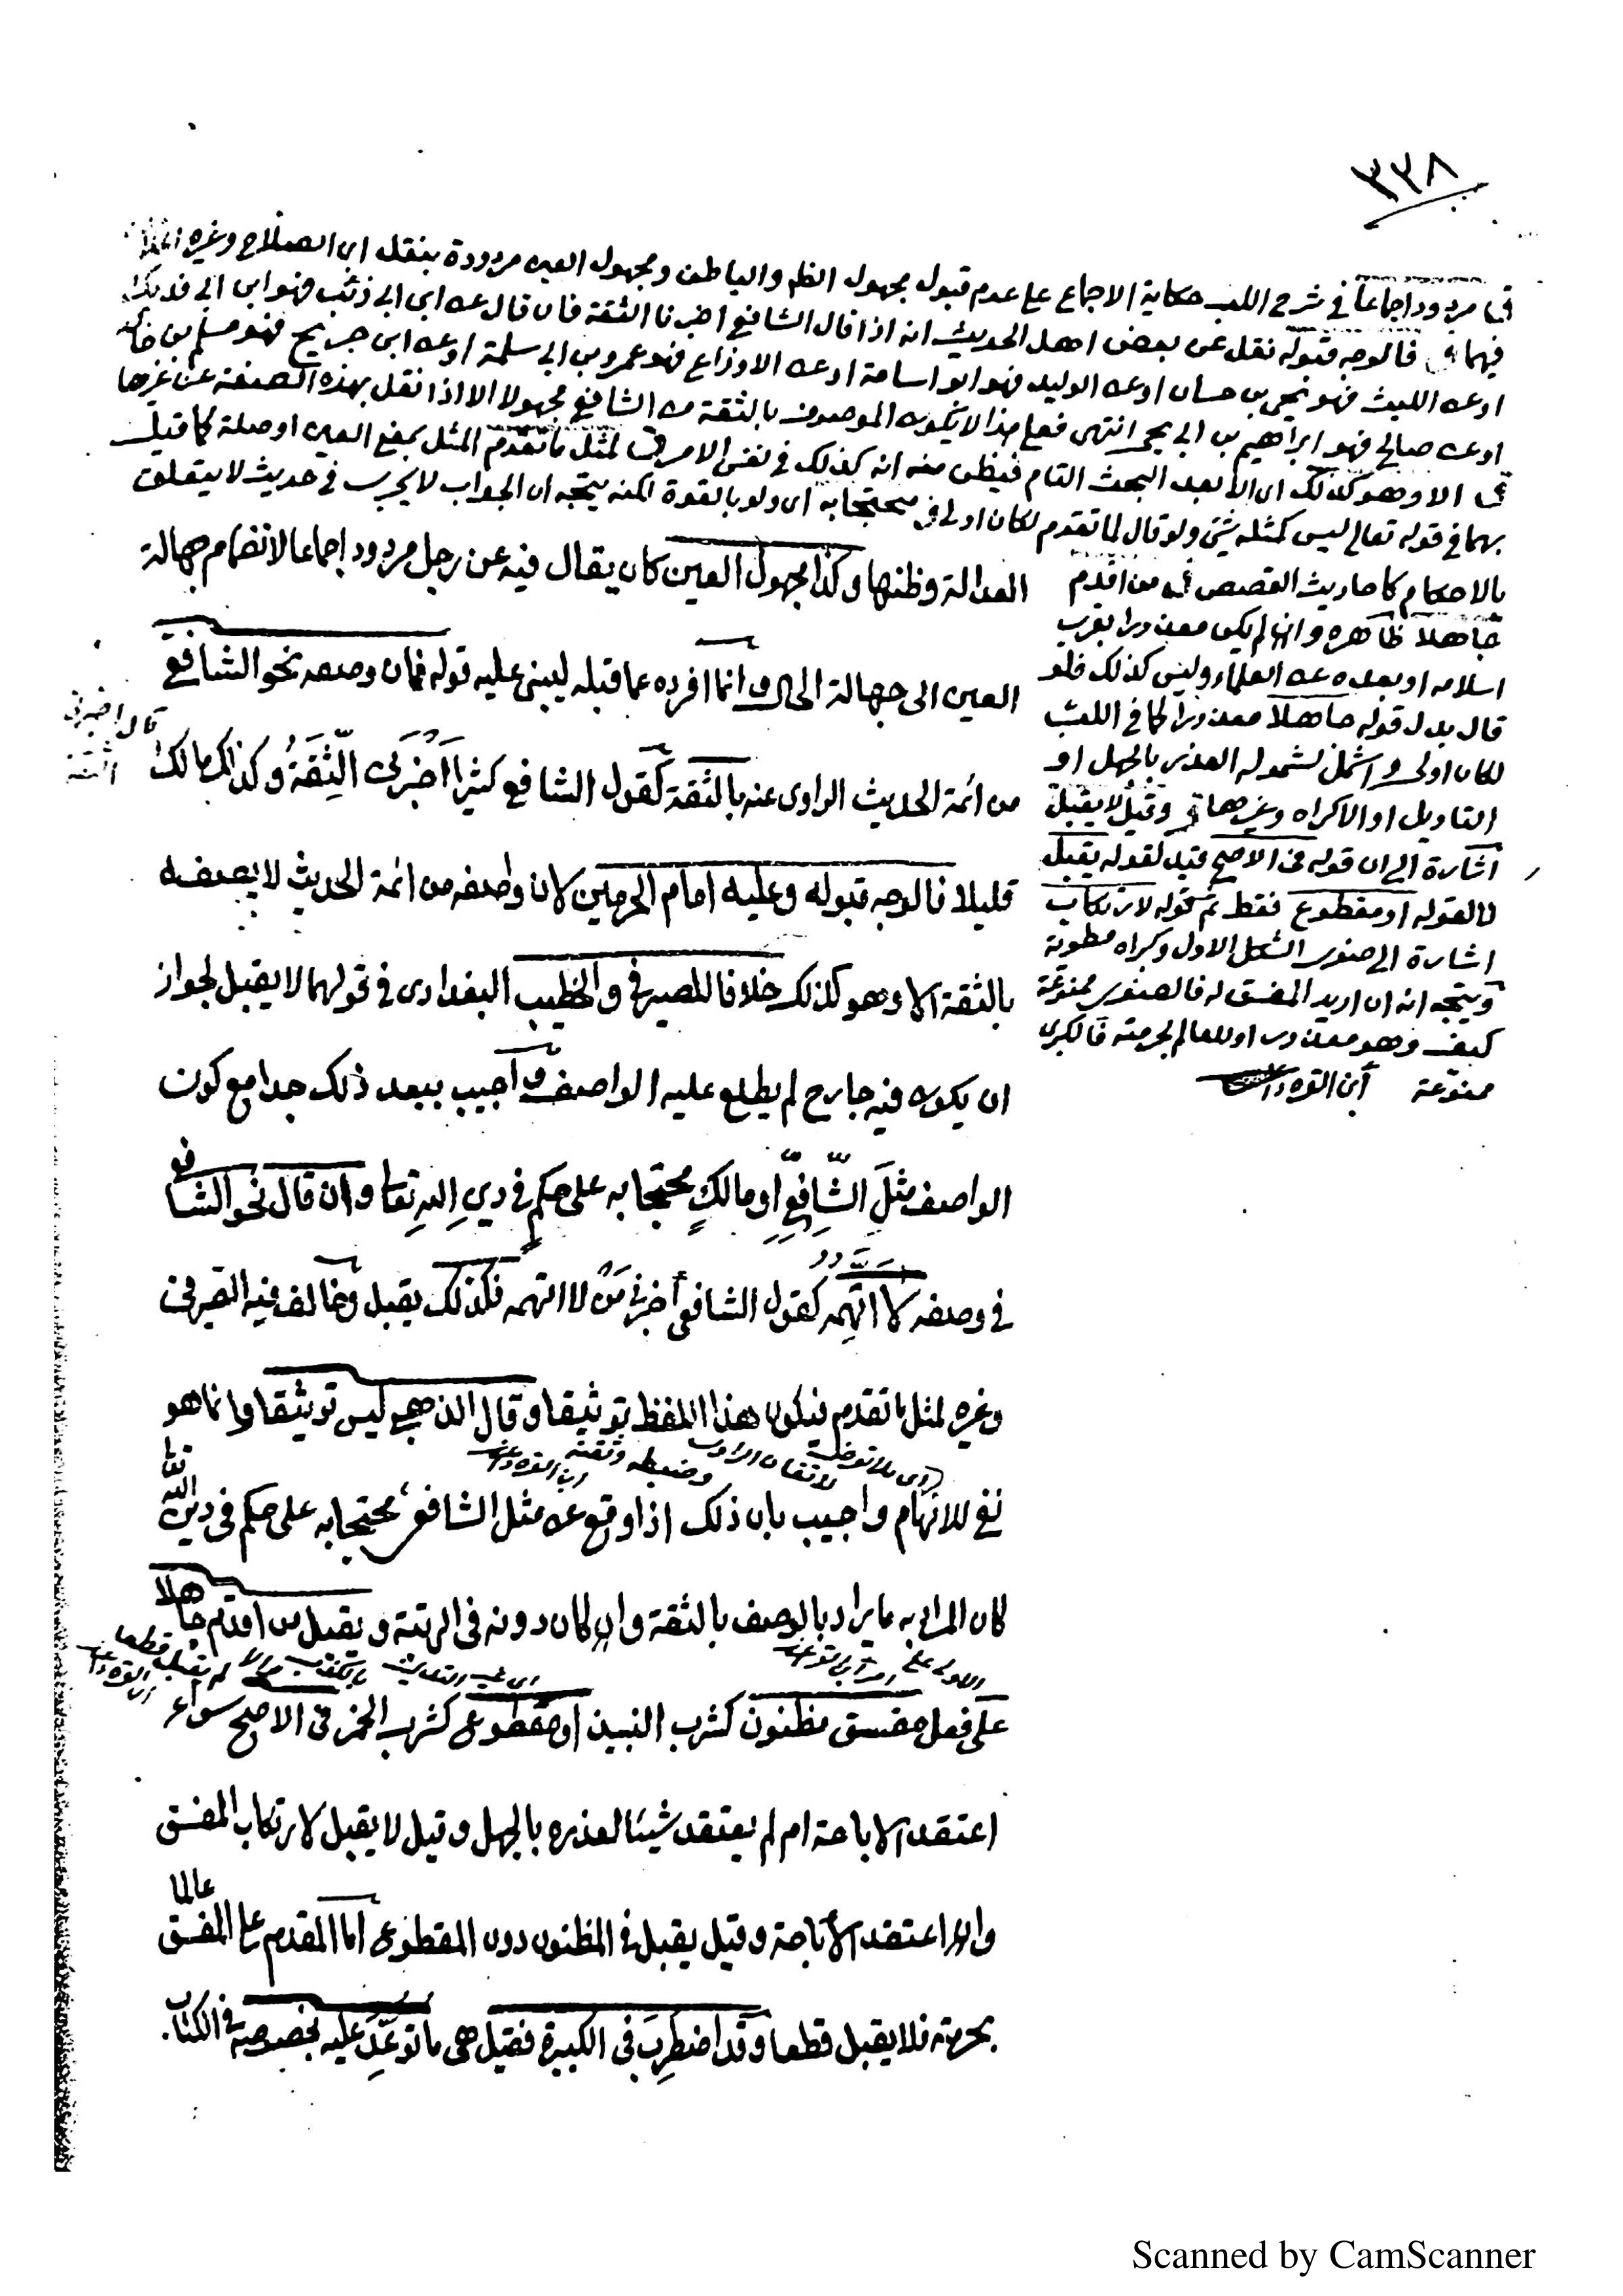 ٣٣٨
في مردود اجماعا في شرح اللب حكاية الاجماع على عدم قبول مجهول الظاهر والباطن ومجهول العين مردودة بنقل ابن الصلاح وغيره
فيهما في فالوجه قبوله نقل عن بعض اهل الحديث انه اذا قال الشافعي اخبرنا الثقة فان قال عن ابن ابي ذئب فهو ابن ابي فديك
او عن الليث فهو يحيى بن حسان او عن الوليد فهو ابو اسامة او عن الاوزاعي فهو عمرو بن ابي سلمة او عن ابن جريج فهو مسلم بن خالد
او عن صالح فهو ابراهيم بن ابي يحيى انتهى فعلى هذا لا يكون الموصوف بالثقة من الشافعي مجهولا الا اذا نقل بهذه الصفة عن غيرها
في الا وهو كذلك اي الا بعد البحث التام فيظن منه انه كذلك في نفس الامر في لمثل ما تقدم المثل بمعنى العين او صلة كما قيل
بهما في قوله تعالى ليس كمثله شئ ولو قال لما تقدم لكان اولى في محتجا به اي ولو بالقوة لكنه يتجه ان الجواب لا يجري في حديث لا يتعلق
بالاحكام كاحاديث القصص في من اقدم
جاهلا ظاهره وان لم يكن معذورا بقرب
اسلامه او بعده عن العلماء وليس كذلك فلو
قال بدل قوله جاهلا معذورا كما في اللب
لكان اولى واشمل لشموله العذر بالجهل او
التاويل او الاكراه وغيرها في وقيل لا يقبل
اشارة الى ان قوله في الاصح قيد لقوله يقبل
لا لقوله او مقطوع فقط ثم قوله لارتكاب
اشارة الى صغرى الشكل الاول وكبراه مطوية
ويتجه انه ان اريد المفسق له فالصغرى ممنوعة
كيف وهو معذور او للعالم بحرمته فالكبرى
ممنوعة ابن القره داغي
العدالة وظنها وكذا مجهول العين كان يقال فيه عن رجل مردود إجماعا لانضمام جهالة
العين الى جهالة الحال وانما افرده عما قبله ليبنى عليه قوله فان وصفه نحو الشافعي
من ائمة الحديث الراوى عنه بالثقة كقول الشافعي كثيرا اخبرني الثِّقَةُ وكذلك مالك
قال اخبرني
الثقة
قليلا فالوجه قبوله وعليه امام الحرمين لان واصفه من ائمة الحديث لا يصفه
بالثقة الا وهو كذلك خلافا للصيرفي والخطيب البغدادى في قولهما لا يقبل لجواز
ان يكون فيه جارح لم يطلع عليه الواصف واجيب ببعد ذلك جدا مع كون
الواصف مثلَ الشّافِعِيِّ او مالكٍ محتجا به على حكمٍ في دينِ اللهِ تعالى وان قال نحو الشافعي
في وصفه لا اتّهمه كقول الشافعي أخبرني مَنْ لا اتهمه فكذلك يقبل وخالف فيه الصيرفي
وغيره لمثل ما تقدم فيكون هذا اللفظ توثيقا وقال الذهبي ليس توثيقا وانما هو
وضبطه وثقته ابن القره داغي
نفي للاتهام واجيب بان ذلك اذا وقع عن مثل الشافعي محتجا به على حكم في دين الله تعالى
كان المراد به ما يراد بالوصف بالثقة وان كان دونه في الرتبة ويقبل من اقدم جاهلا
لم يقبل قطعا ابن القره داغي
على فعل مفسق مظنون كشرب النبيذ او مقطوع كشرب الخمر في الاصح سواء
اعتقد الاباحة ام لم يعتقد شيئا لعذره بالجهل وقيل لا يقبل لارتكاب المفسق
وان اعتقد الاباحة وقيل يقبل في المظنون دون المقطوع اما المقدم على المفسق عالما
بحرمته فلا يقبل قطعا وقد اضطرب في الكبيرة فقيل هي ما توعّد عليه بخصوصه في الكتاب.
Scanned by CamScanner